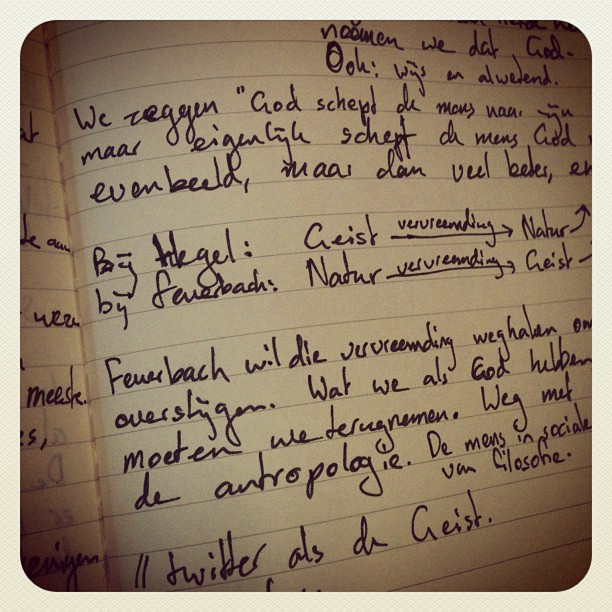 noemen we dat God.
Ook: wijs en alwetend.
We zeggen "God schept de mens naar zijn
maar eigenlijk schept de mens God
evenbeeld, maar dan veel beter, en
Bij Hegel: Geist vervreemding → Natur
bij Feuerbach: Natur vervreemding → Geist
Feuerbach wil die vervreemding weghalen om
overstijgen. Wat we als God hebben
moeten we terugnemen. Weg met
de antropologie. De mens in sociale
van filosofie.
// twitter als de Geist.
de aan
weze
meeste.
es,
enigen